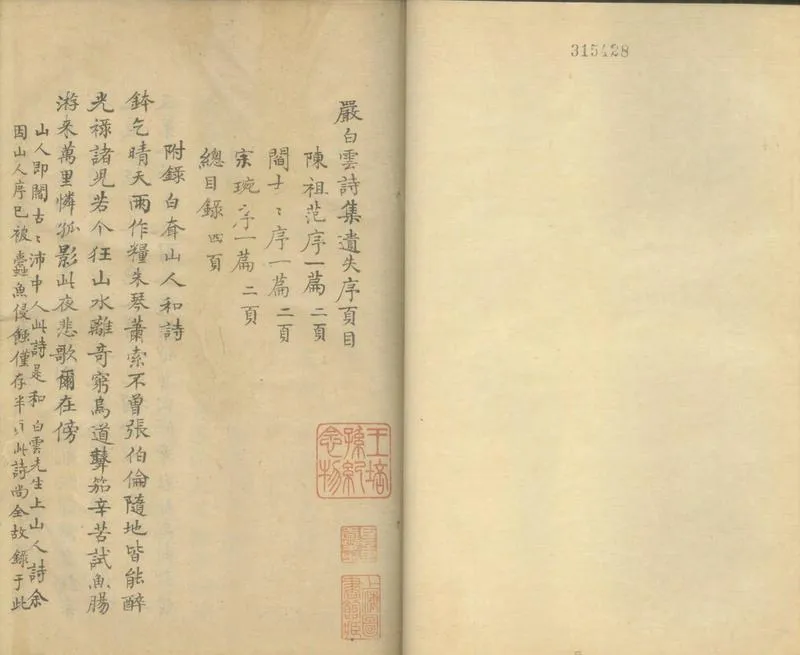 嚴白雲詩集遺失序頁目
陳祖范序一篇 二頁
閻士〻序一篇 二頁
宋琬序一篇 二頁
總目錄 四頁
附錄白耷山人和詩
鉢乞晴天雨作糧朱琴蕭索不曽張伯倫隨地皆能醉
光祿諸児若个狂山水離奇窮鳥道聲笳辛苦試魚腸
游来萬里憐孤影此夜悲歌爾在傍
山人即閻古〻沛中人此詩是和 白雲先生上山人詩余
因山人序已被蠹魚侵蝕僅存半頁此詩尚全故錄于此
王培孫紀念物
上海圖書館藏
315428